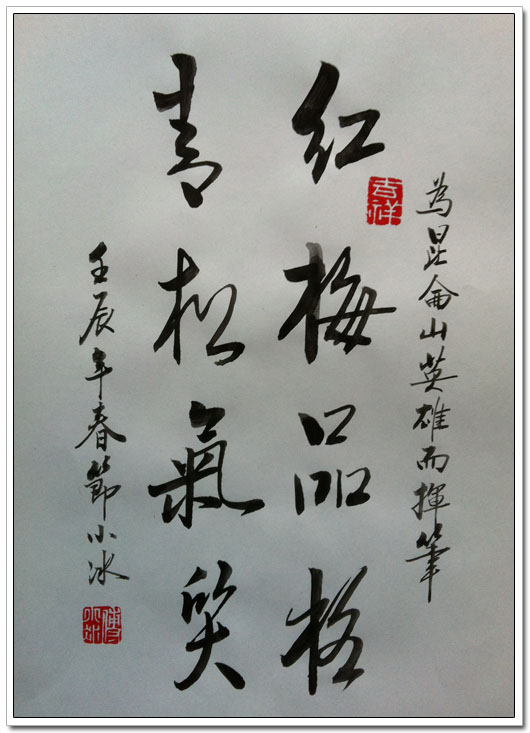 為昆侖山英雄而揮筆
吉祥
红梅品格
青松氣质
壬辰年春節小冰